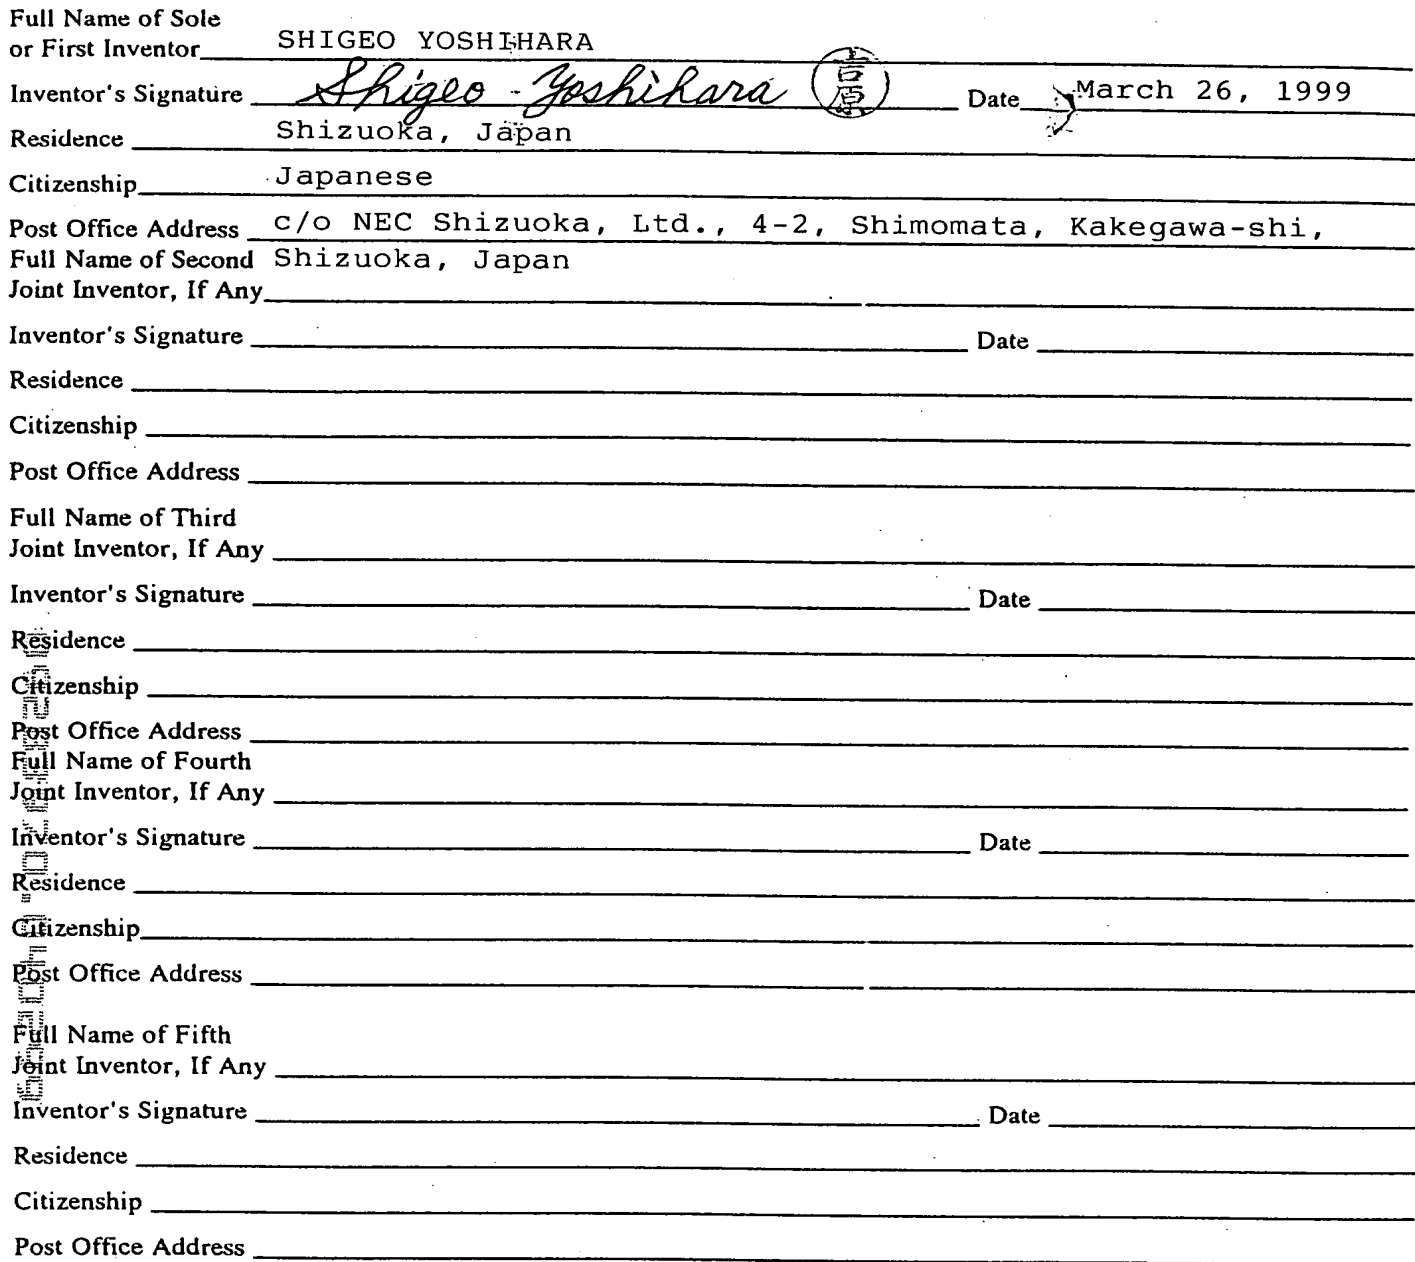 Full Name of Sole
or First Inventor SHIGEO YOSHIHARA
Inventor's Signature Shigeo Yoshihara 吉原 Date March 26, 1999
Residence Shizuoka, Japan
Citizenship Japanese
Post Office Address c/o NEC Shizuoka, Ltd., 4-2, Shimomata, Kakegawa-shi,
Full Name of Second Shizuoka, Japan
Joint Inventor, If Any
Inventor's Signature Date
Residence
Citizenship
Post Office Address
Full Name of Third
Joint Inventor, If Any
Inventor's Signature Date
Residence
Citizenship
Post Office Address
Full Name of Fourth
Joint Inventor, If Any
Inventor's Signature Date
Residence
Citizenship
Post Office Address
Full Name of Fifth
Joint Inventor, If Any
Inventor's Signature Date
Residence
Citizenship
Post Office Address